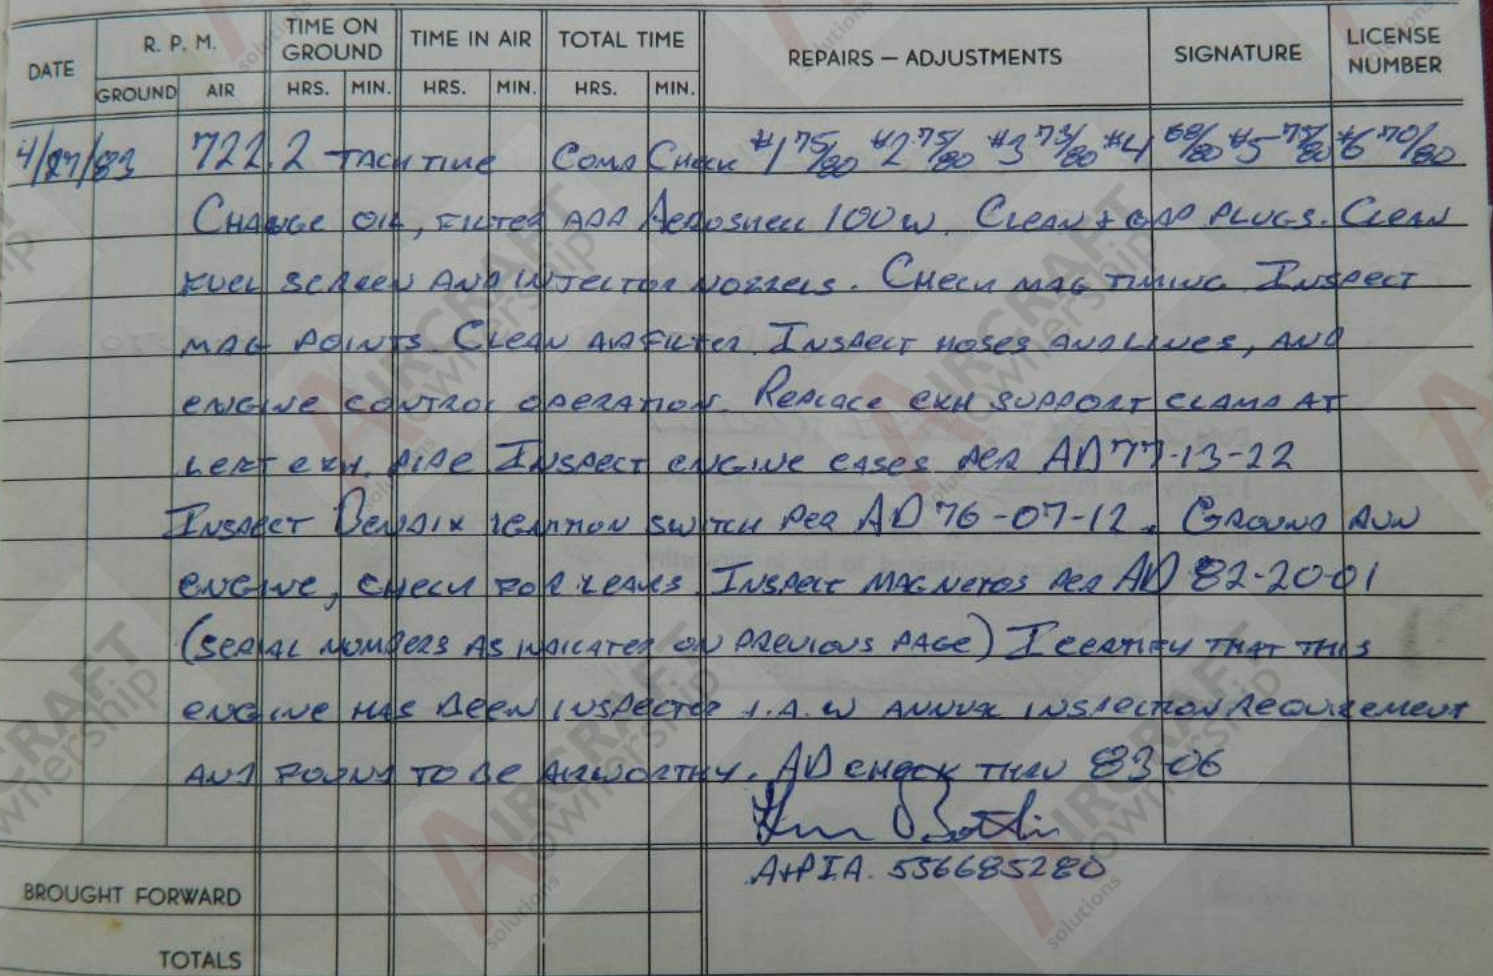 DATE R. P. M. TIME ON GROUND TIME IN AIR TOTAL TIME REPAIRS — ADJUSTMENTS SIGNATURE LICENSE NUMBER
GROUND AIR HRS. MIN. HRS. MIN. HRS. MIN.
4/27/83 722.2 TACH TIME COMP CHECK #1 75/80 #2 75/80 #3 73/80 #4 68/80 #5 75/80 #6 70/80
CHANGE OIL, FILTER ADD AEROSHELL 100W. CLEAN + GAP PLUGS. CLEAN
FUEL SCREEN AND INJECTOR NOZZELS. CHECK MAG TIMING. INSPECT
MAG POINTS. CLEAN AIR FILTER. INSPECT HOSES AND LINES, AND
ENGINE CONTROL OPERATION. REPLACE EXH SUPPORT CLAMP AT
LEFT EXH. PIPE INSPECT ENGINE CASES PER AD 77-13-22
INSPECT BENDIX IGNITION SWITCH PER AD 76-07-12. GROUND RUN
ENGINE, CHECK FOR LEAKS. INSPECT MAGNETOS PER AD 82-20-01
(SERIAL NUMBERS AS INDICATED ON PREVIOUS PAGE) I CERTIFY THAT THIS
ENGINE HAS BEEN INSPECTED I.A.W ANNUAL INSPECTION REQUIREMENT
AND FOUND TO BE AIRWORTHY. AD CHECK THRU 83-06
A+P I.A. 556685280
BROUGHT FORWARD
TOTALS
AIRCRAFT
ownership
solutions